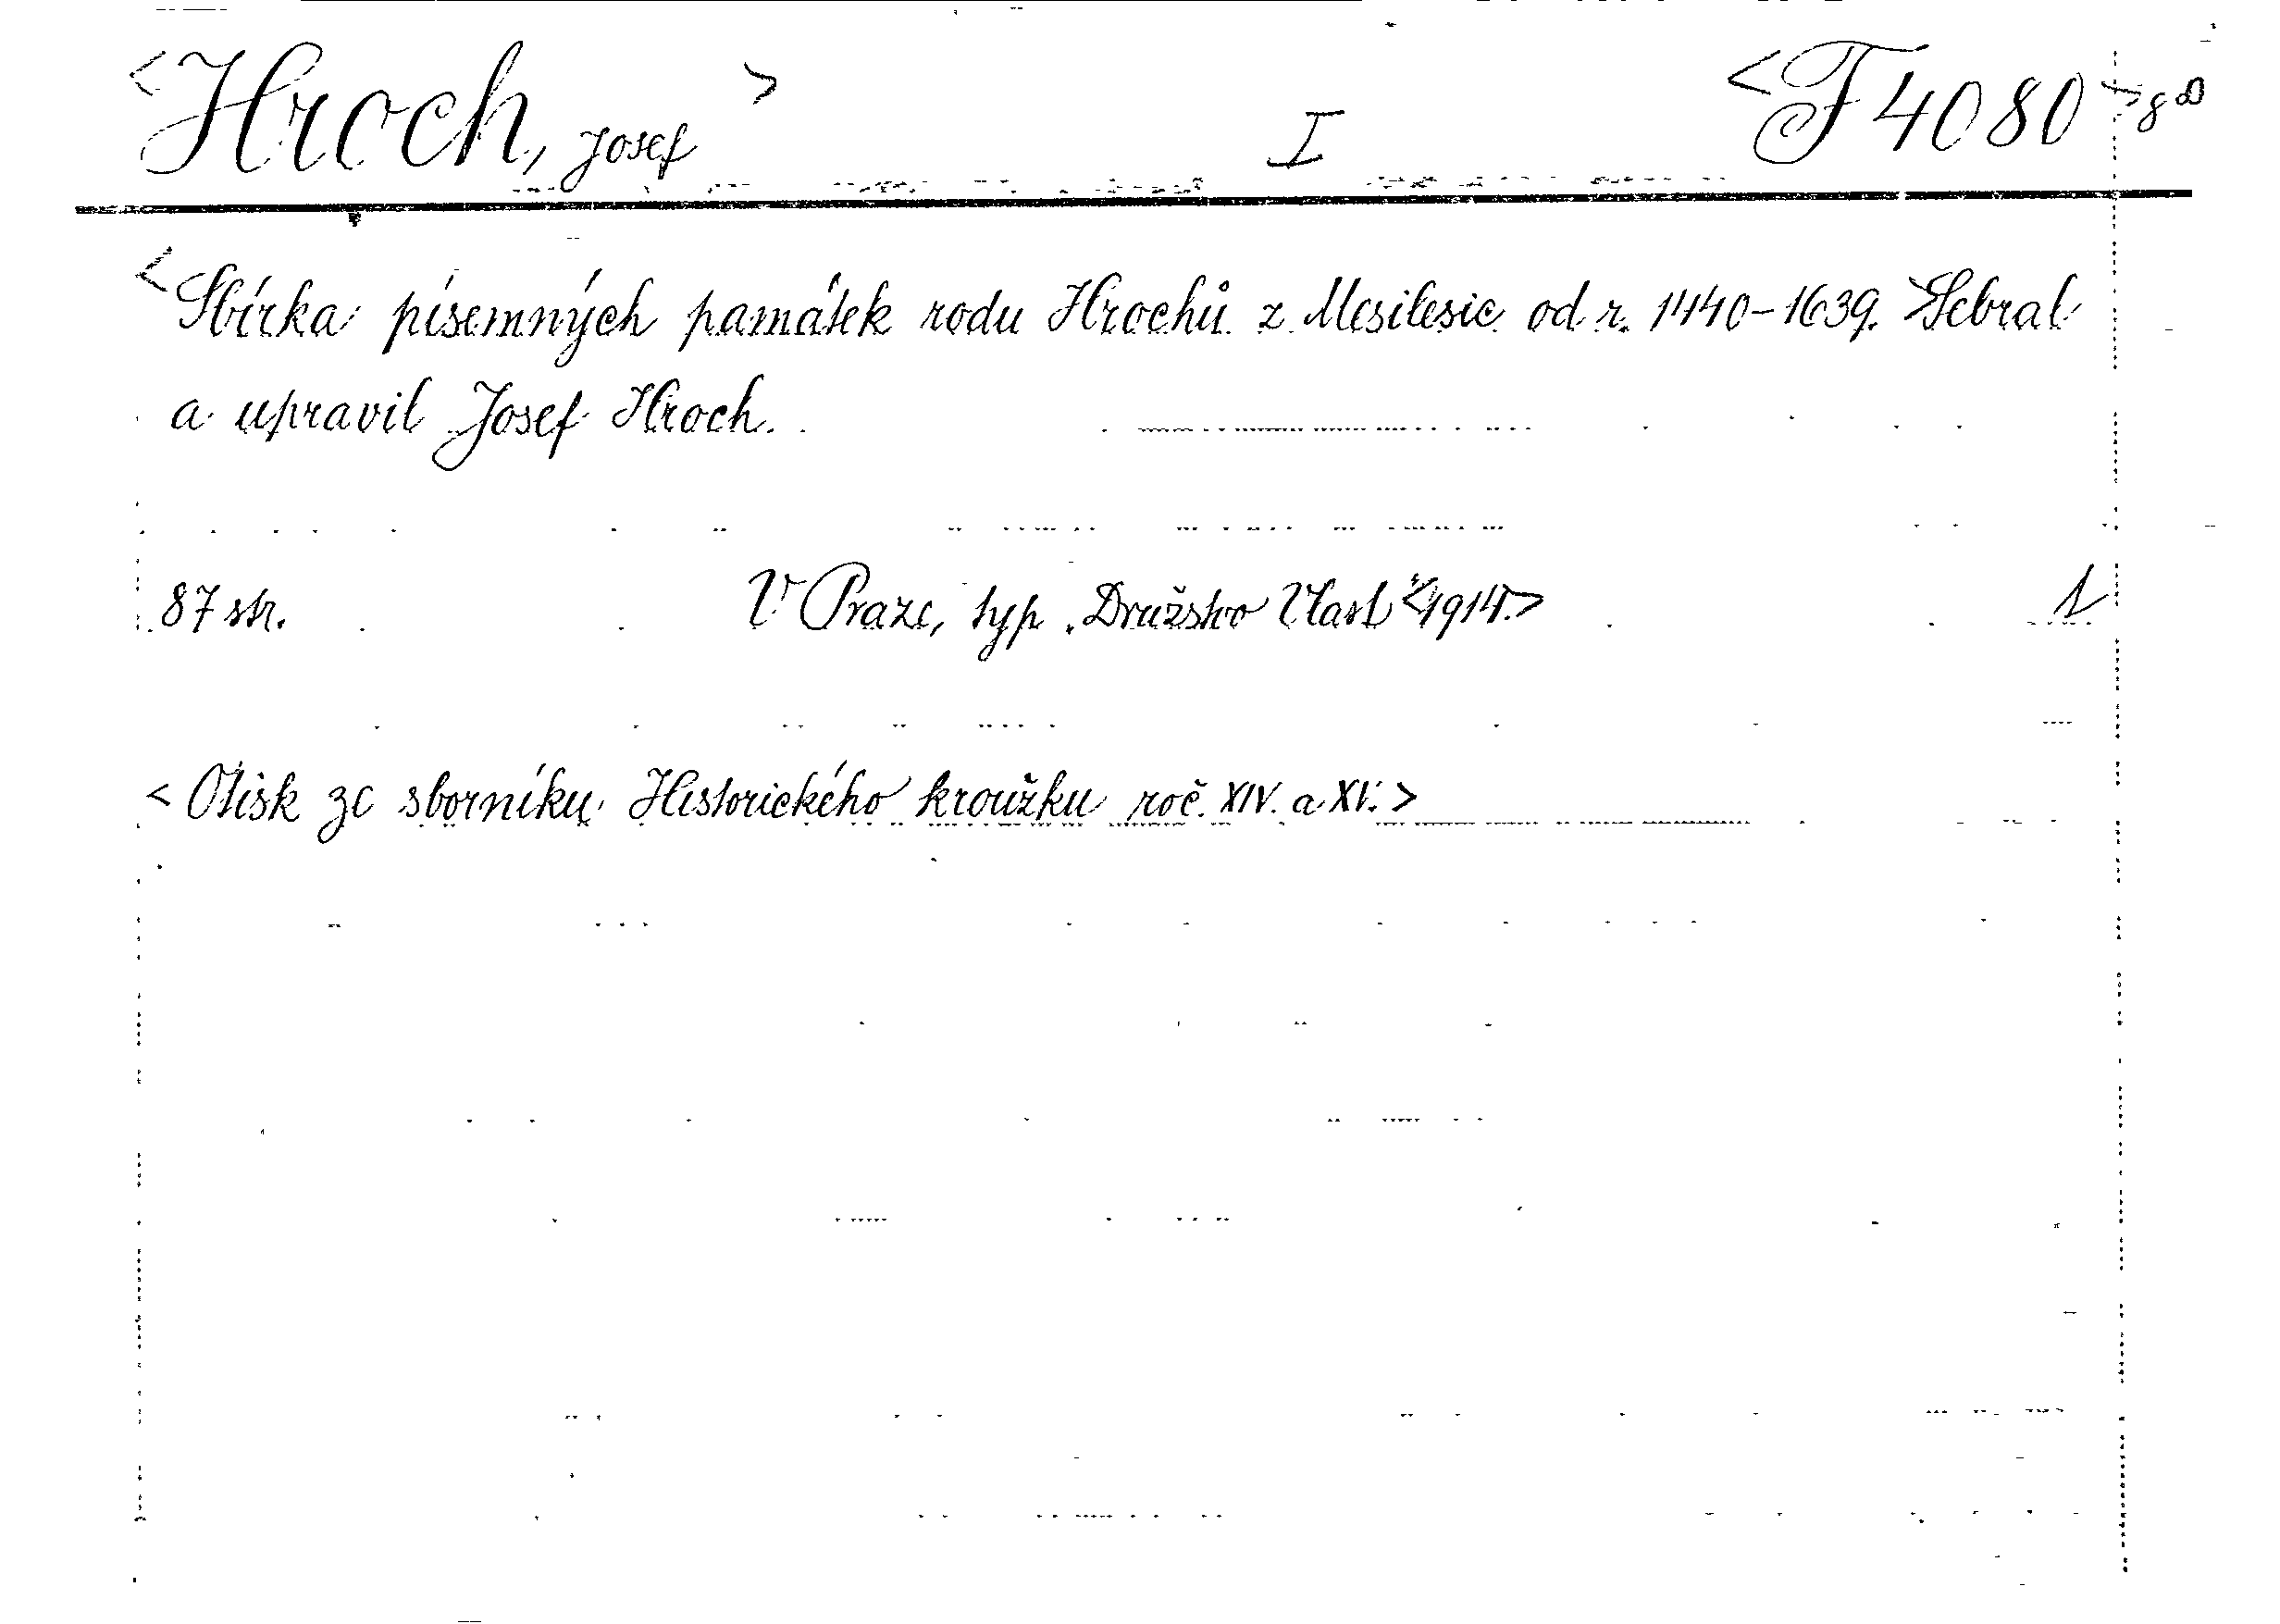 <Hroch, Josef> I <F 4080> 8°
<Sbírka písemných památek rodu Hrochů z Mesilesic od r. 1440-1639. >Sebral
a upravil Josef Hroch.
87 str. V Praze, typ. „Družstvo Vlast" <1914.> 1
<Otisk ze sborníku Historického kroužku roč. XIV. a XV.>